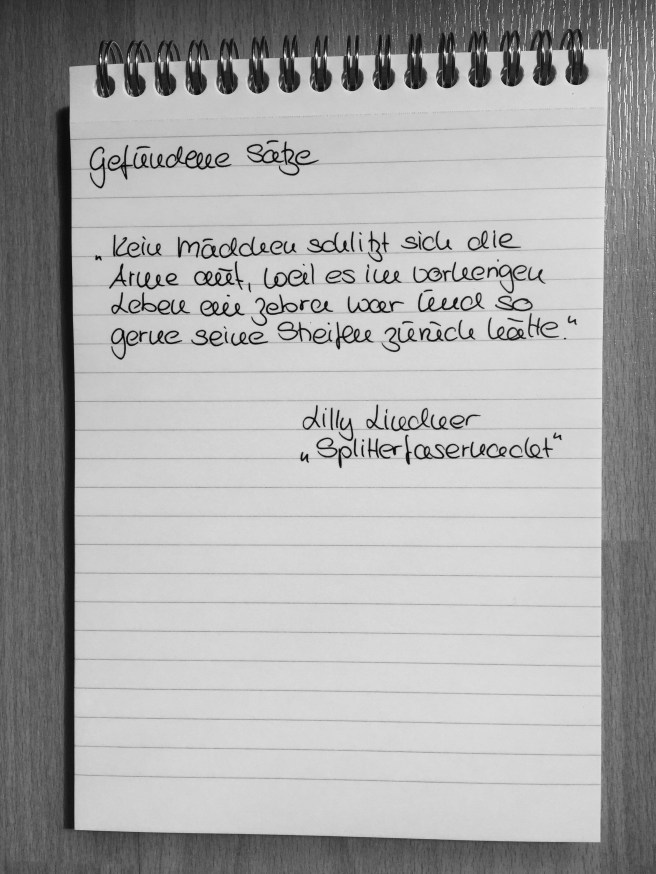 Gefundene Sätze
„Kein Mädchen schlitzt sich die
Arme auf, weil es im vorherigen
Leben ein Zebra war und so
gerne seine Streifen zurück hätte."
Lilly Lindner
„Splitterfasernackt"